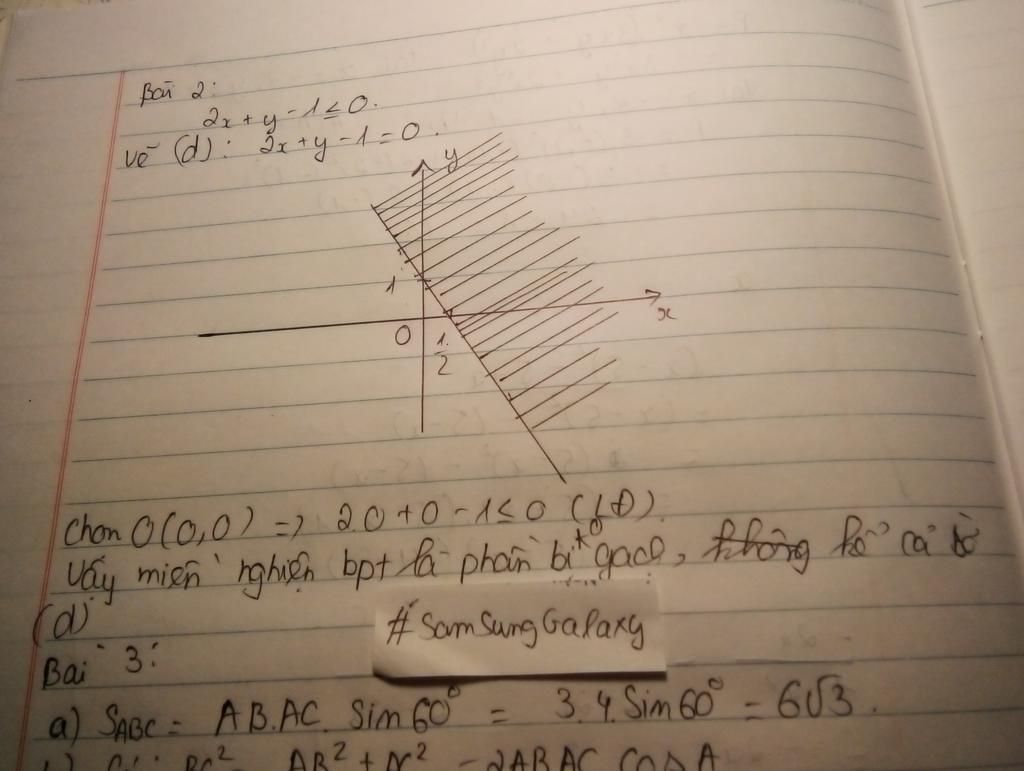 Bài 2:
2x + y - 1 ≤ 0.
Vẽ (d): 2x + y - 1 = 0.
y
1
x
O
1/2
Chọn O(0,0) => 2.0 + 0 - 1 ≤ 0 (LĐ).
Vậy miền nghiệm bpt là phần bị gạch, không kể cả bờ
(d)
#SamSungGalaxy
Bài 3:
a) SABC = AB.AC. Sin60° = 3.4.Sin60° = 6√3.
BC² = AB² + AC² - 2AB.AC.CosA